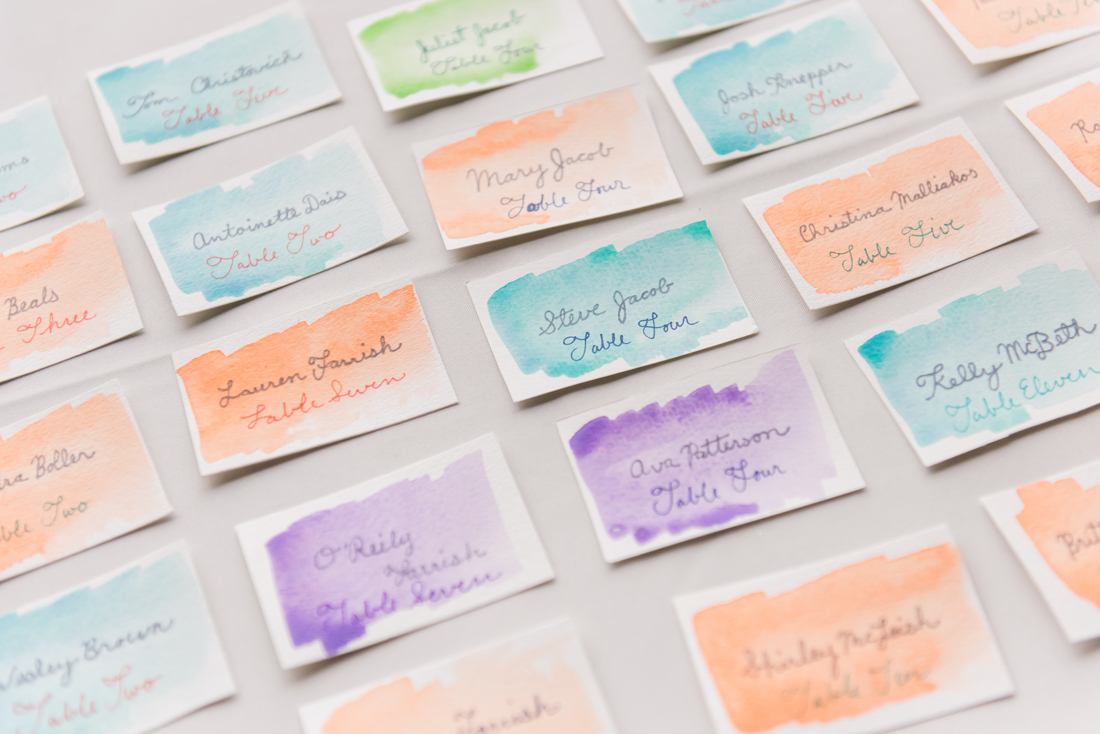 Tom Christovich
Table Five
Juliet Jacob
Table Four
Josh Knepper
Table Five
Antoinette Dais
Table Two
Mary Jacob
Table Four
Christina Malliakos
Table Five
Beals
Three
Lauren Farrish
Table Seven
Steve Jacob
Table Four
Kelly McBeth
Table Eleven
Boller
Two
O'Reily
Farrish
Table Seven
Ava Patterson
Table Four
Wesley Brown
Table Two
Farrish
Shirley McLeish
Table Ten